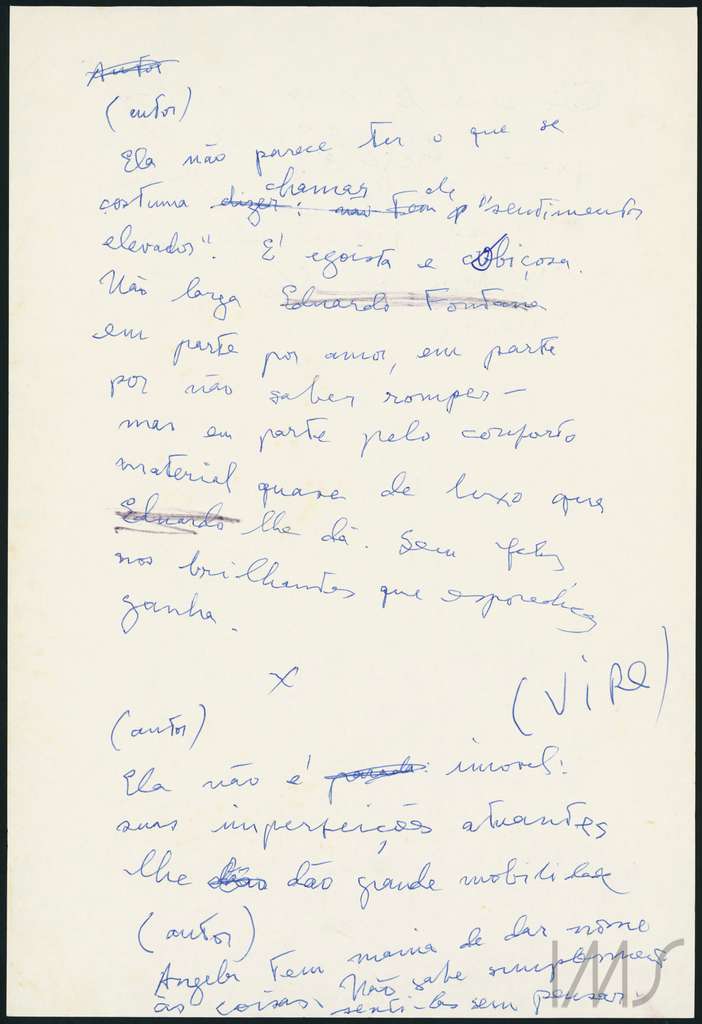 Autor
(autor)
Ela não parece ter o que se
chamar de
costuma dizer: não tem "sentimentos
elevados". É egoista e cobiçosa.
Não larga Eduardo Fontana
em parte por amor, em parte
por não saber romper —
mas em parte pelo conforto
material quase de luxo que
Eduardo lhe dá. Sem falar
nos brilhantes que esporadica
ganha.
x
(VIRE)
(autor)
Ela não é parada: imovel:
suas imperfeições atuantes
lhe dão grande mobilidade
(autor)
Angela tem mania de dar nome
às coisas. Não sabe simplesmente
senti-las sem pensar.
IMS